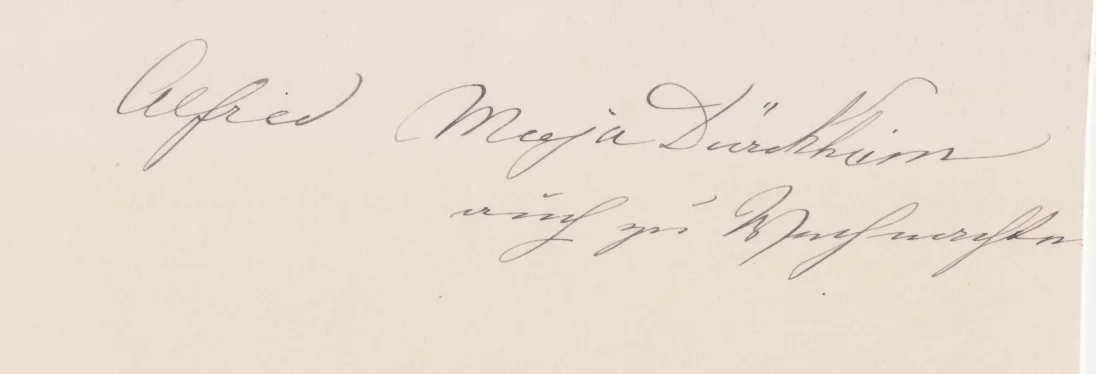 Alfred Meeja Dürckheim
auch zu Weihnachten